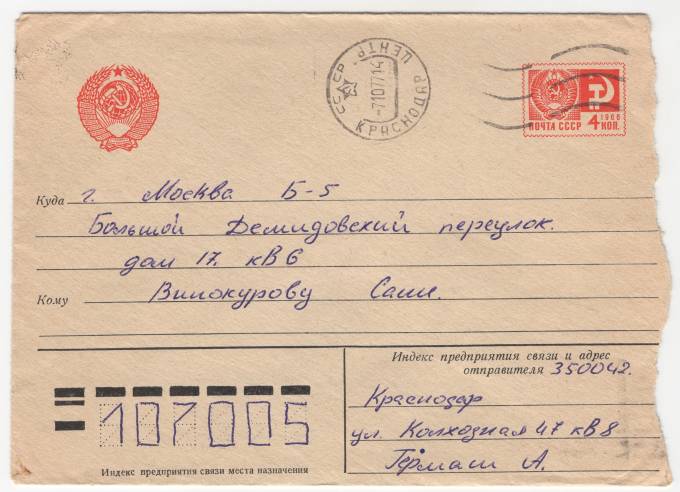 СССР ЦЕНТР
-7107714
КРАСНОДАР
ПОЧТА СССР
1966
4 КОП.
Куда г. Москва Б-5
Большой Демидовский переулок.
дом 17. кв 6
Кому Винокурову Саше.
Индекс предприятия связи и адрес
отправителя 350042.
Краснодар
ул. Колхозная 47 кв 8
Гермаш А.
107005
Индекс предприятия связи места назначения